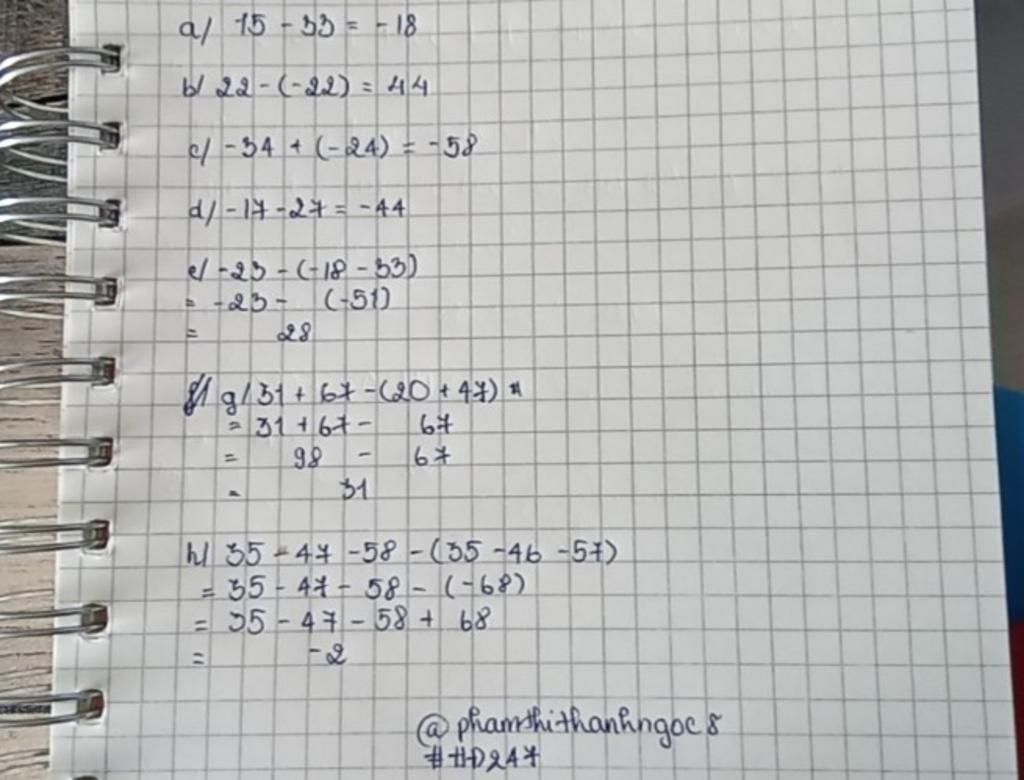 a/ 15 - 33 = -18
b/ 22 - (-22) = 44
c/ -34 + (-24) = -58
d/ -17 - 27 = -44
e/ -23 - (-18 - 33)
= -23 - (-51)
= 28
g/ 31 + 67 - (20 + 47)
= 31 + 67 - 67
= 98 - 67
= 31
h/ 35 - 47 - 58 - (35 - 46 - 57)
= 35 - 47 - 58 - (-68)
= 35 - 47 - 58 + 68
= -2
@phamthithanhngoc8
#HD247